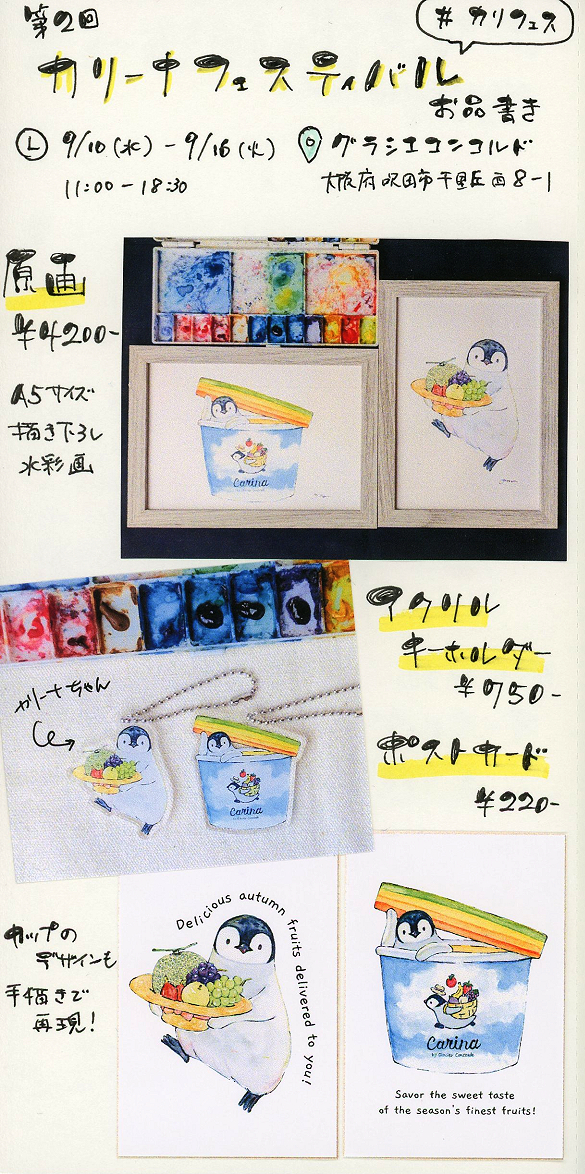 第2回
# カリフェス
カリーナフェスティバル
お品書き
9/10(水)-9/16(火)
11:00-18:30
グラシエコンコルド
大阪府吹田市千里丘西8-1
原画
¥4200-
A5サイズ
描き下ろし
水彩画
Carina
アクリル
キーホルダー
¥750-
カリーナちゃん
Carina
ポストカード
¥220-
カップの
デザインも
手描きで
再現!
Delicious autumn fruits delivered to you!
Carina
by Glacier Concorde
Savor the sweet taste
of the season's finest fruits!